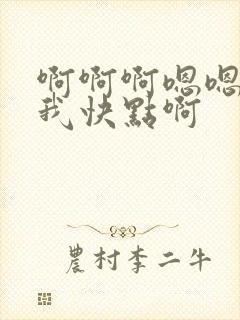 啊啊啊嗯嗯
我快點啊
農村李二牛